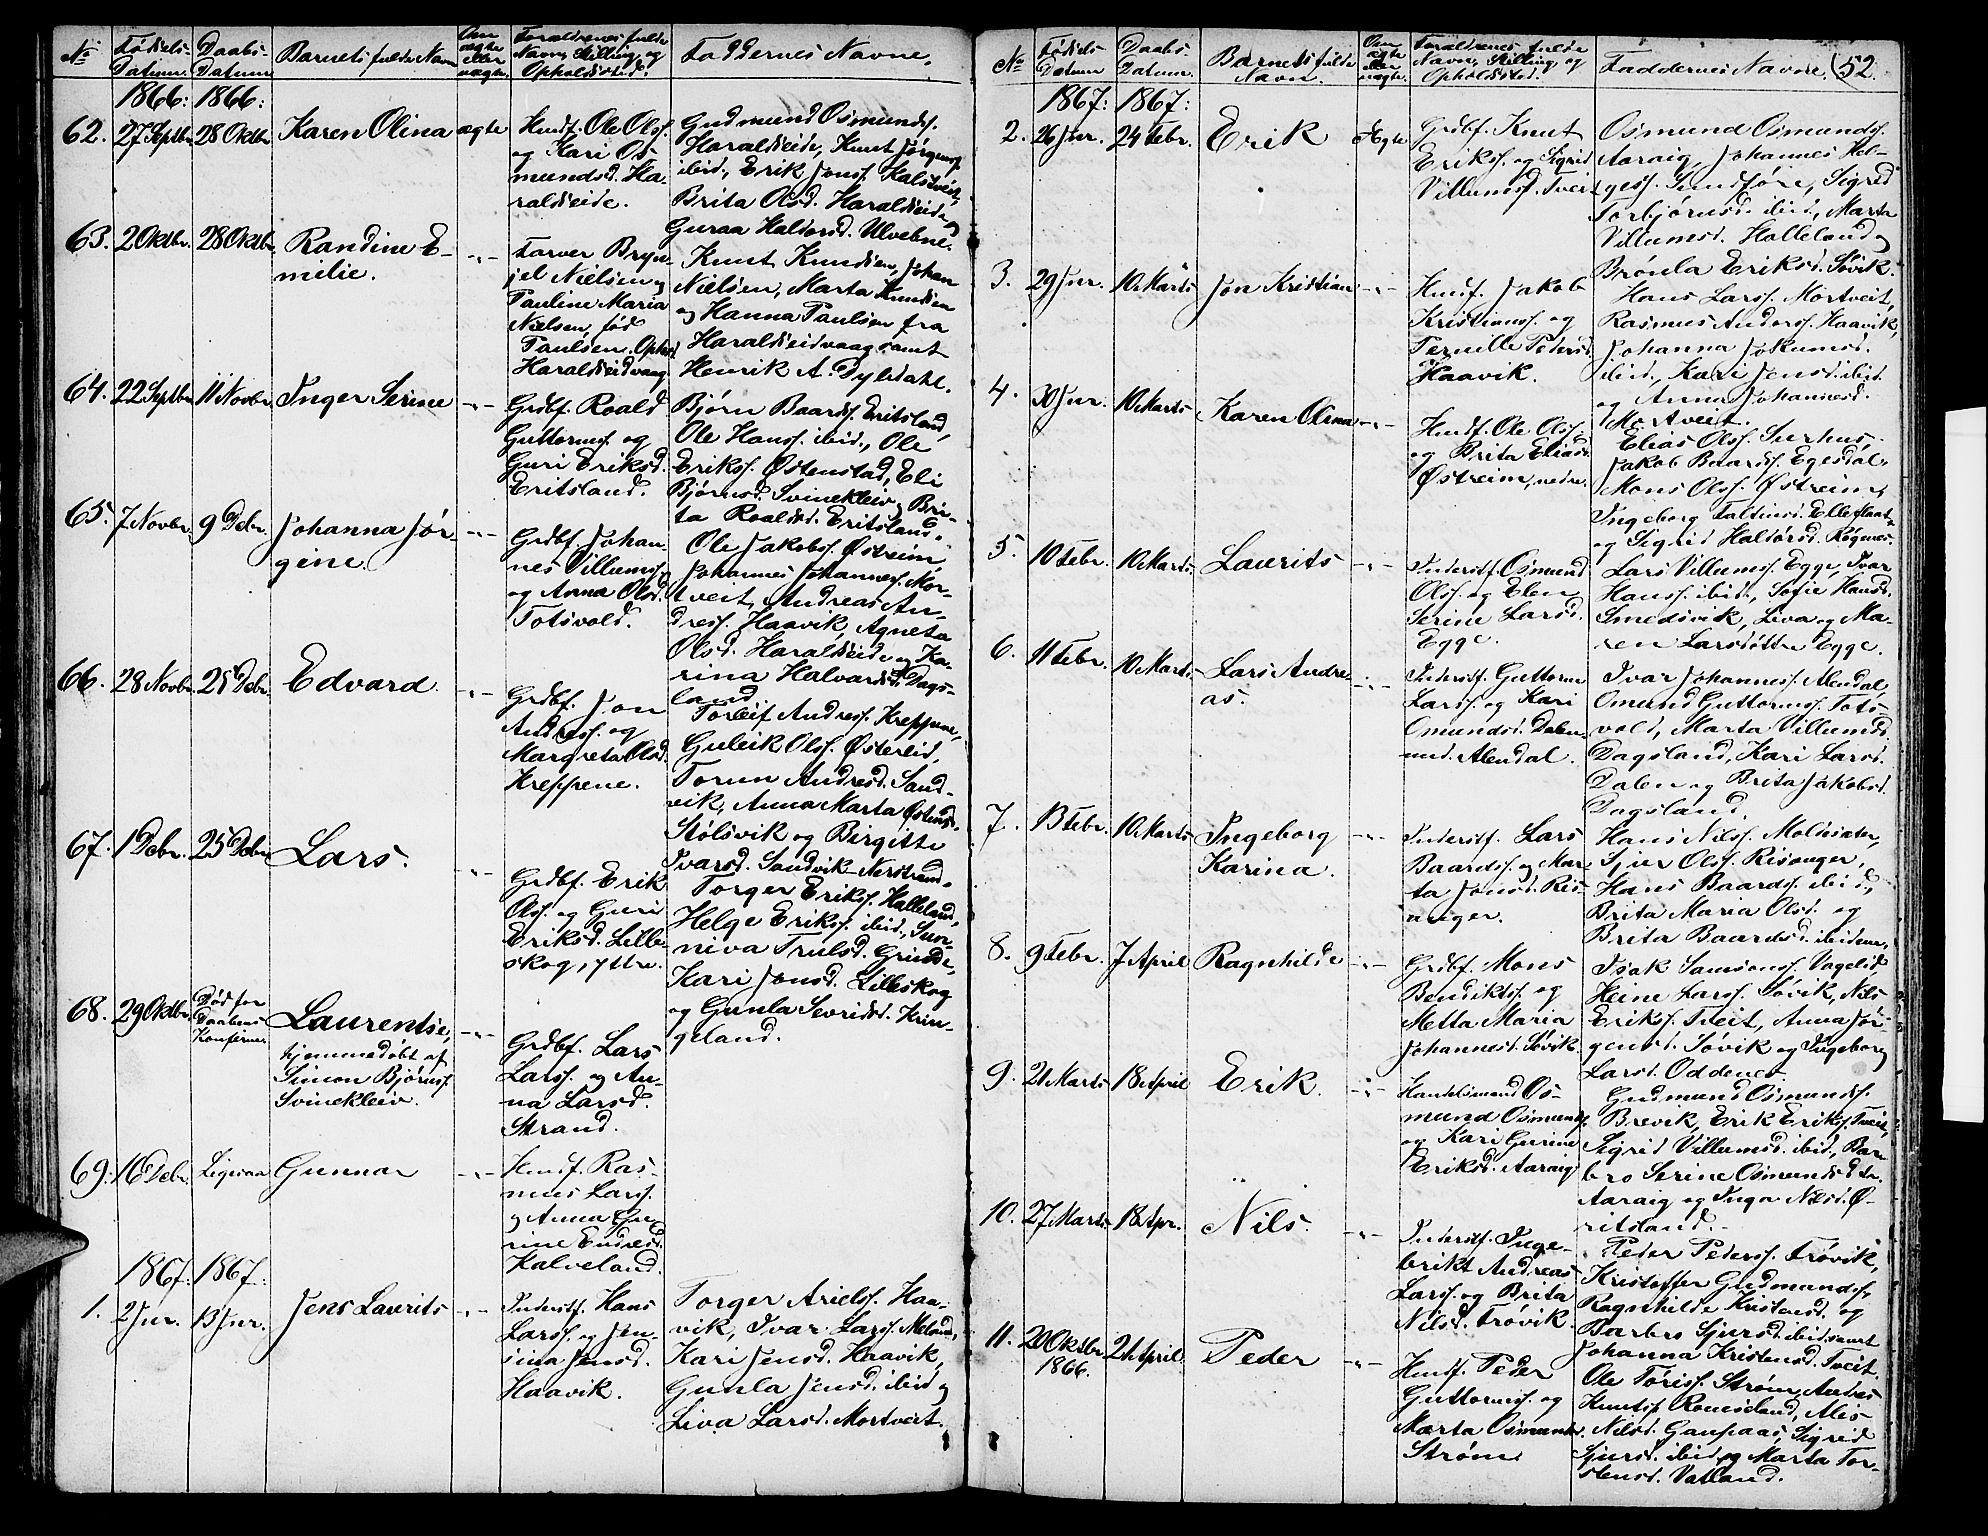 No
Fødsels-
Datum.
Daabs-
Datum
Barnets fulde Navn
Om
ægte
eller
uægte.
Forældrenes fulde
Navn, Stilling og
Opholdssted.
Faddernes Navne.
1866: 1866:
62. 27 Septbr. 28 Oktbr. Karen Olina ægte
Husf. Ole Olss.
og Kari Os-
mundsd. Ha-
raldseide.
Gudmund Osmundss.
Haraldseide, Knut Jørgenss.
ibid., Erik Jonss. Kalstveit,
Brita Olsd. Haraldseide og
Guraa Haldorsd. Ulvebne.
63. 2 Oktbr. 28 Oktbr. Randine E-
milie.
Farver Bryn-
jel Nielsen og
Pauline Maria
Nielsen, fød
Paulsen. Ophold
Haraldseidvaag
Knut Knudsen, Johan
Nielsen, Marta Knudsen
og Hanna Paulsen fra
Haraldseidvaag samt
Henrik A. Dybdahl.
64. 22 Septbr. 11 Novbr. Inger Serine
Grdbf. Roald
Guttormss. og
Guri Eriksd.
Eritsland.
Bjørn Baardss. Eritsland,
Ole Hanss. ibid., Ole
Erikss. Østenstad, Eli
Bjørnsd. Svinekleiv og Bri-
ta Roaldsd. Eritsland.
65. 7 Novbr. 9 Debr. Johanna Jør-
gine.
Grdbf. Johan-
nes Villumss.
og Anna Olsd.
Totsvold.
Ole Jakobss. Østreim,
Johannes Johanness. Mor-
tveit, Andreas An-
dress. Haavik, Agneta
Olsd. Haraldseide og Ka-
rina Halvardsd. Dags-
land.
66. 28 Novbr. 25 Debr. Edvard.
Grdbf. Jon
Andress. og
Margreta Olsd.
Kreppene.
Torleif Andress. Kreppene,
Guleik Olss. Østereid,
Torun Andresd. Sand-
vik, Anna Marta Østensd.
Stølsvik og Birgitte
Ivarsd. Sandvik Nerstrand.
67. 1 Debr. 25 Debr. Lars.
Grdbf. Erik
Olss. og Guri
Eriksd. Lille-
skog, yttre.
Torger Erikss. Halleland,
Helge Erikss. ibid., Sun-
niva Trulsd. Grinde,
Kari Jonsd. Lilleskog
og Gunla Sevridsd. Krin-
geland.
68. 29 Oktbr. Død for
Daabens
Konferner
Laurentse,
hjemmedøbt af
Simon Bjørnss.
Svinekleiv.
Grdbf. Lars
Larss. og An-
na Larsd.
Strand.
69. 16 Debr. Ligesaa Gunnar
Husf. Ras-
mus Larss.
og Anna Gu-
rine Endresd.
Kalveland.
1867: 1867:
1. 2 Jnr. 13 Jnr. Jens Laurits
Inderstf. Hans
Larss. og Jen-
sina Jensd.
Haavik.
Torger Arielss. Haa-
vik, Ivar Larss. Meland,
Kari Jensd. Haavik,
Gunla Jensd. ibid og
Liva Larsd. Mortveit.
No
Fødsels
Datum
Daabs-
Datum.
Barnets fulde
Navn.
Om
ægte
eller
uægte.
Forældrenes fulde
Navn, Stilling og
Opholdssted.
Faddernes Navne. (52.
1867: 1867:
2. 26 Jnr. 24 Febr. Erik Ægte
Grdbf. Knut
Erikss. og Sigrid
Villumsd. Tveit
Osmund Osmundss.
Aaraig, Johannes Hel-
gess. Sundføre, Sigrid
Torbjørnsd. ibid., Marta
Villumsd. Halleland og
Brønla Eriksd. Søvik.
3. 29 Jnr. 10 Marts Jon Kristian
Husf. Jakob
Kristianss. og
Pernille Pedersd.
Haavik.
Hans Larss. Mortveit,
Rasmus Anderss. Haavik,
Johanna Jokumsd.
ibid., Kari Jensd. ibid.
og Anna Johannesd.
Mortveit.
4. 30 Jnr. 10 Marts Karen Olina
Husf. Ole Olss.
og Brita Eliasd.
Østreim, nedre.
Elias Olss. Surhus,
Jakob Baardss. Egesdal,
Mons Olss. Østreim,
Ingeborg Faltinsd.
og Sigrid Haldorsd.
5. 10 Febr. 10 Marts Laurits
Inderstf. Osmund
Olss. og Elen
Serine Larsd.
Egge.
Lars Villumss. Egge, Ivar
Hanss. ibid., Sofie Hansd.
Smedsvik, Liva og Ma-
ren Larsdøttre Egge.
6. 11 Febr. 10 Marts Lars Andre-
as.
Inderstf. Guttorm
Larss. og Kari
Omundsd. Dalen
und. Alendal.
Ivar Johanness. Alendal,
Omund Guttormss. Tots-
vold, Marta Villumsd.
Dagsland, Kari Larsd.
Dalen og Brita Jakobsd.
Dagsland.
7. 13 Febr. 10 Marts Ingeborg
Karina.
Inderstf. Lars
Baardss. og Mar-
ta Jonsd. Ris-
anger.
Hans Nilss. Moldsater,
Sjur Olss. Risanger,
Hans Baardss. ibid.,
Brita Maria Olsd. og
Brita Baardsd. ibidem.
8. 9 Febr. 7 April Ragnhilde
Grdbf. Mons
Bendiktss. og
Metta Maria
Johannesd. Søvik.
Isak Samsonss. Vagelid
Heine Larss. Søvik, Nils
Erikss. Tveit, Anna Jør-
gensd. Søvik og Ingeborg
Larsd. Oddenes.
9. 21 Marts 18 April Erik.
Handelsmand Os-
mund Osmundss.
og Kari Gurine
Eriksd. Aaraig
Gudmund Osmundss.
Brevik, Erik Erikss. Tveit,
Sigrid Villumsd. ibid., Bar-
bro Serine Osmundsdtr.
Aaraig og Inga Nilsd. Ø-
ritsland.
10. 27 Marts 18 Apr. Nils.
Inderstf. Inge-
brikt Andreas
Larss. og Brita
Nilsd. Frøvik.
Peder Pederss. Frøvik,
Kristoffer Gudmundss.
Ragnhilde Kristensd. og
Barbro Sjursd. ibid. samt
Johanna Kristensd. Tveit.
11. 20 Oktbr.
1866. 21 April. Peder
Husf. Peder
Guttormss. og
Marta Osmundsd.
Strøm
Ole Toriss. Strøm, Andres
Knutss. Romsland, Alis
Nilsd. Gaupaas, Sigrid
Sjursd. ibid og Marta Tor-
stensd. Vatland.